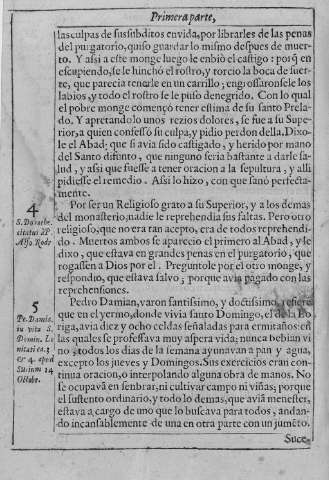 Primera parte,
las culpas de sus subditos embia, por librarles de las penas
del purgatorio, quiso guardar lo mismo despues de muer-
to. Y assi a este monge luego le embiò el castigo: porq̃ en
escupiendo, se le hinchò el rostro, y torcio la boca de suer-
te, que parecia tenerle en un carrillo; engrossaronsele los
labios, y todo el rostro se le puso denegrido. Con lo qual
el pobre monge començò tener estima de su santo Prela-
do. Y apretandolo unos rezios dolores, se fue a su Supe-
rior, a quien confessò su culpa, y pidio perdon della. Dixo-
le el Abad: que si avia sido castigado, y herido por mano
del Santo difunto, que ninguno seria bastante a darle sa-
lud, y assi que fuesse a tener oracion a la sepultura, y alli
pidiesse el remedio. Assi lo hizo, con que sanò perfecta-
mente.
4
Por ser un Religioso grato a su Superior, y a los demas
del monasterio, nadie le reprehendia sus faltas. Pero otro
religioso, que no era tan acepto, era de todos reprehendi-
do. Muertos ambos se apareciò el primero al Abad, y le
dixo, que estava en grandes penas en el purgatorio, que
rogassen a Dios por el. Preguntole por el otro monge, y
respondio, que estava salvo; porque avia pagado con las
reprehensiones.
S. Doroth.
citatus PP.
Alfo. Rodr
5
Pedro Damian, varon santissimo, y doctissimo, refiere
que en el yermo, donde vivia santo Domingo, el de
riga, avia diez y ocho celdas señaladas para ermitaños: en
las quales se professava muy aspera vida; nunca bebian vi
no; todos los dias de la semana ayunavan a pan y agua,
excepto los jueves y Domingos. Sus exercicios eran conti-
nua oracion, o interpolando alguna obra de manos. No
se ocupavā en senbrar, ni cultivar campo ni viñas; porque
el sustento ordinario, y todo lo demas, que aviā menester,
estava a cargo de uno que lo buscava para todos, andan-
do incansablemente de una en otra parte con un jumẽto.
Pe. Damia.
in vita S.
Domin. Lo
ricati ca. 3
& 4. apud
Surium 14
Octobr.
Suce-